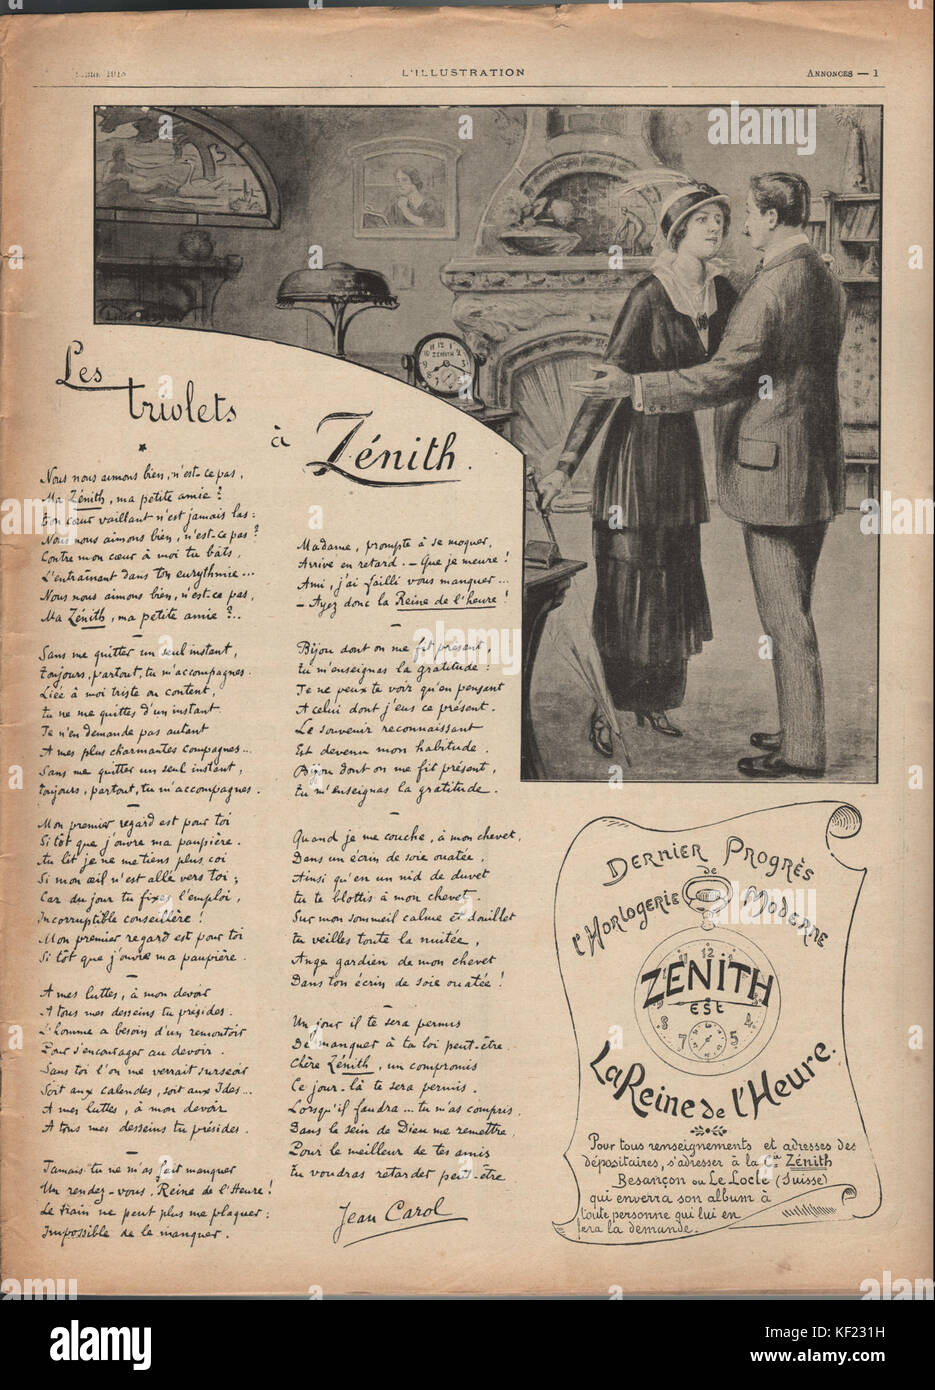 1915
L'ILLUSTRATION
ANNONCES — 1
ZENITH
Les
triolets
à
Zénith.
Nous nous aimons bien, n'est-ce pas,
Ma Zénith, ma petite amie ?
Ton cœur vaillant n'est jamais las :
Nous nous aimons bien, n'est-ce pas ?
Contre mon cœur à moi tu bats,
L'entraînant dans ton eurythmie...
Nous nous aimons bien, n'est-ce pas,
Ma Zénith, ma petite amie ?..
Sans me quitter un seul instant,
Toujours, partout, tu m'accompagnes.
Liée à moi triste ou content,
Tu ne me quittes d'un instant.
Je n'en demande pas autant
A mes plus charmantes compagnes...
Sans me quitter un seul instant,
Toujours, partout, tu m'accompagnes.
Mon premier regard est pour toi
Sitôt que j'ouvre ma paupière.
Au lit je ne me tiens plus coi
Si mon œil n'est allé vers toi ;
Car du jour tu fixes l'emploi,
Incorruptible conseillère !
Mon premier regard est pour toi
Sitôt que j'ouvre ma paupière.
A mes luttes, à mon devoir
A tous mes desseins tu présides.
L'homme a besoin d'un remontoir
Pour s'encourager au devoir.
Sans toi l'on me verrait surseoir
Soit aux calendes, soit aux Ides...
A mes luttes, à mon devoir
A tous mes desseins tu présides.
Jamais tu ne m'as fait manquer
Un rendez-vous, Reine de l'Heure !
Le train ne peut plus me plaquer :
Impossible de le manquer.
Madame, prompte à se moquer,
Arrive en retard. — Que je meure !
Ami, j'ai failli vous manquer...
— Ayez donc la Reine de l'heure !
Bijou dont on me fit présent,
Tu m'enseignas la gratitude :
Je ne peux te voir qu'en pensant
A celui dont j'eus ce présent.
Le souvenir reconnaissant
Est devenu mon habitude.
Bijou dont on me fit présent,
Tu m'enseignas la gratitude.
Quand je me couche, à mon chevet,
Dans un écrin de soie ouatée,
Ainsi qu'en un nid de duvet
Tu te blottis à mon chevet.
Sur mon sommeil calme et douillet
Tu veilles toute la nuitée,
Ange gardien de mon chevet
Dans ton écrin de soie ouatée !
Un jour il te sera permis
De manquer à ta loi peut-être.
Chère Zénith, un compromis
Ce jour-là te sera permis.
Lorsqu'il faudra... tu m'as compris,
Dans le sein de Dieu me remettre,
Pour le meilleur de tes amis
Tu voudras retarder peut-être.
Jean Carol
DERNIER PROGRÈS
de
l'HORLOGERIE MODERNE
12
ZENITH
EST
8 7 5 4
La Reine de l'Heure.
Pour tous renseignements et adresses des
dépositaires, s'adresser à la Cie Zénith
Besançon ou Le Locle (Suisse)
qui enverra son album à
toute personne qui lui en
fera la demande.
alamy
a
Image ID: KF231H
www.alamy.com